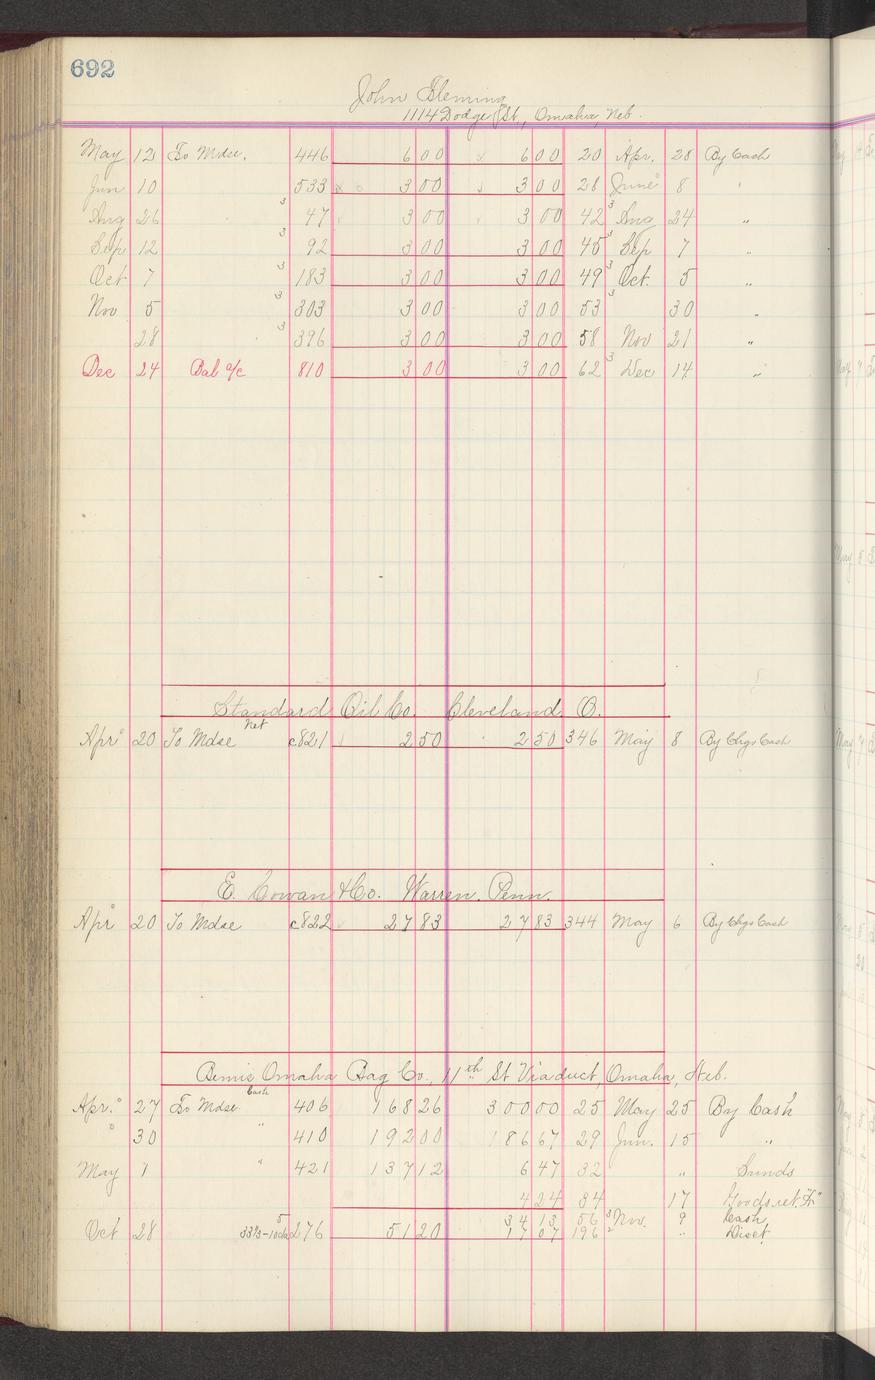 692
John Fleming
1114 Dodge St., Omaha, Neb.
May 12 To Mdse. 446 6 00 6 00 20 Apr. 28 By Cash
Jun 10 533 3 00 3 00 28 June 8 "
Aug 26 3 47 3 00 3 00 42 3 Aug 24 "
Sep 12 3 92 3 00 3 00 45 3 Sep 7 "
Oct 7 3 183 3 00 3 00 49 3 Oct. 5 "
Nov 5 3 303 3 00 3 00 53 3 30 "
28 3 396 3 00 3 00 58 Nov 21 "
Dec 24 Bal a/c 810 3 00 3 00 62 3 Dec 14 "
Standard Oil Co. Cleveland, O.
Apr 20 To Mdse Net c821 2 50 2 50 346 May 8 By Chgs Cash
E. Cowan & Co. Warren, Penn.
Apr 20 To Mdse c822 27 83 27 83 344 May 6 By Chgs Cash
Bemis Omaha Bag Co., 11th St Viaduct, Omaha, Neb.
Apr. 27 To Mdse Cash 406 168 26 300 00 25 May 25 By Cash
30 " 410 192 00 186 67 29 Jun. 15 "
May 1 " 421 137 12 6 47 32 " Sunds
4 24 34 17 Goods ret. "A"
34 13 56 3 Nov. 9 Cash
Oct 28 33⅓-10 5 276 51 20 17 07 196 " Disct.